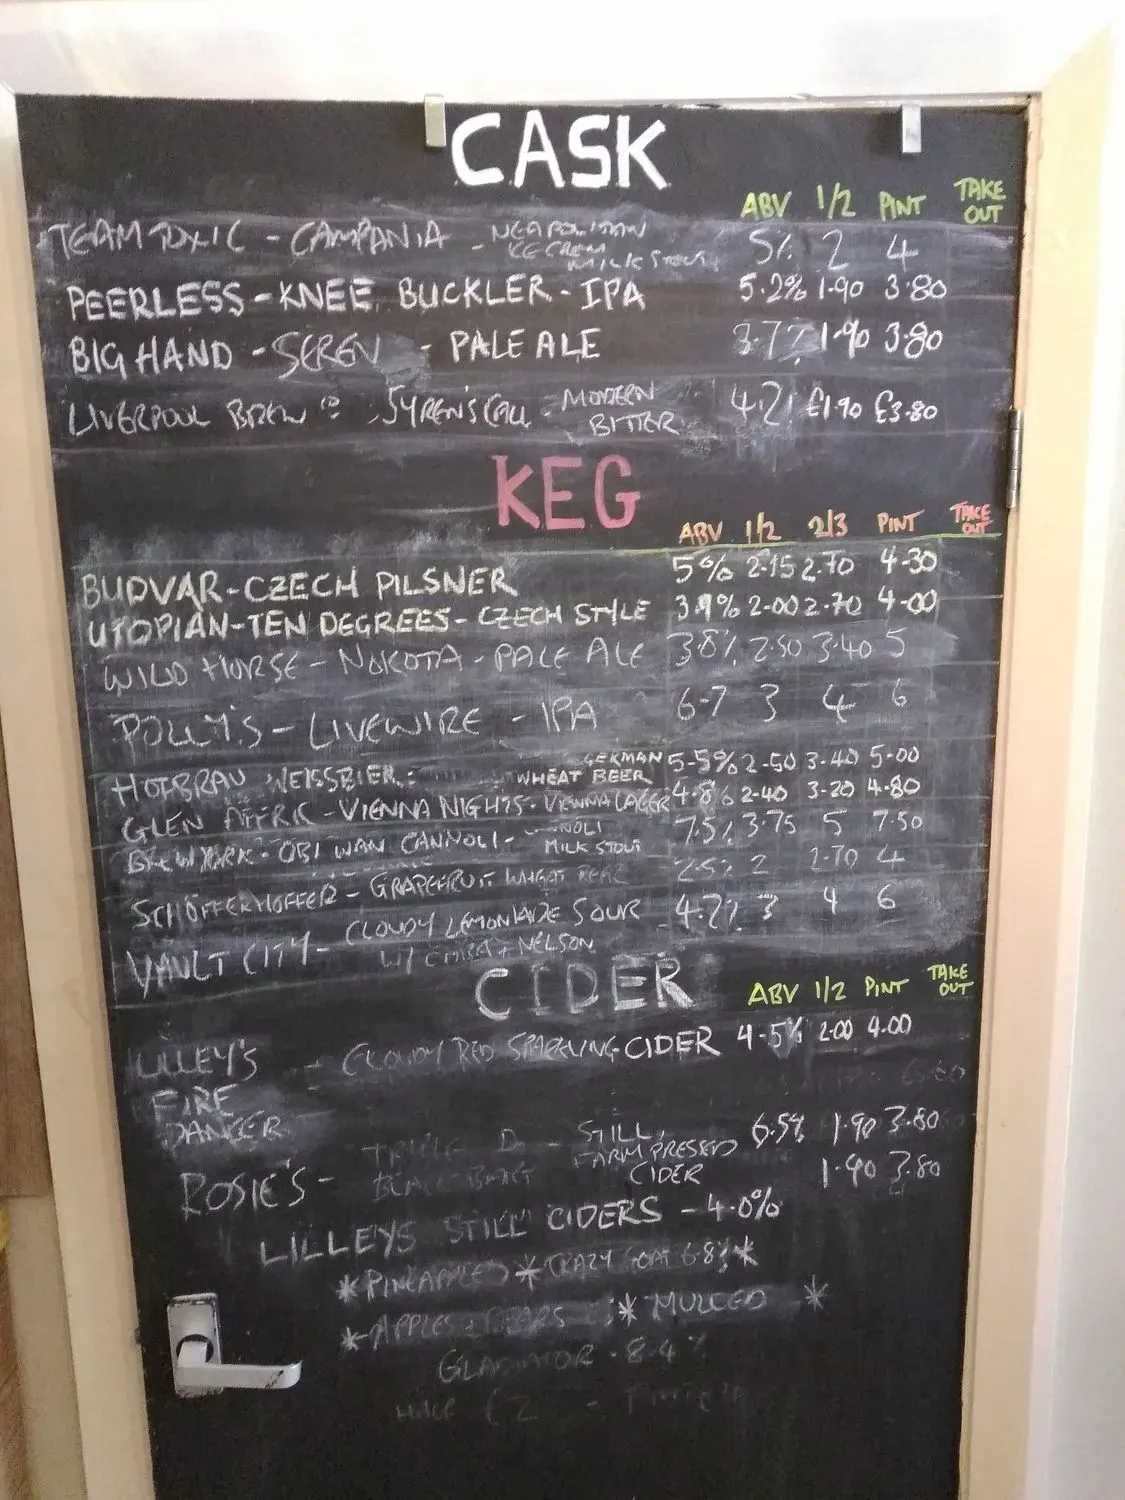 CASK
ABV 1/2 PINT TAKE OUT
TEAM TOXIC - CAMPANIA - NEAPOLITAN ICE CREAM MILK STOUT 5% 2 4
PEERLESS - KNEE BUCKLER - IPA 5.2% 1.90 3.80
BIG HAND - SEREN - PALE ALE 3.7% 1.90 3.80
LIVERPOOL BREW CO SYREN'S CALL - MODERN BITTER 4.2% £1.90 £3.80
KEG
ABV 1/2 2/3 PINT TAKE OUT
BUDVAR - CZECH PILSNER 5% 2.15 2.70 4.30
UTOPIAN - TEN DEGREES - CZECH STYLE 3.9% 2.00 2.70 4.00
WILD HORSE - NOKOTA - PALE ALE 3.8% 2.50 3.40 5
POLLY'S - LIVEWIRE - IPA 6.7 3 4 6
HOFBRAU WEISSBIER: GERMAN WHEAT BEER 5.5% 2.50 3.40 5.00
GLEN AFFRIC - VIENNA NIGHTS - VIENNA LAGER 4.8% 2.40 3.20 4.80
BREW YORK - OBI WAN CANNOLI - MILK STOUT 7.5% 3.75 5 7.50
SCHOFFERHOFFER - GRAPEFRUIT WHEAT BEER 2.5% 2 2.70 4
VAULT CITY - CLOUDY LEMONADE SOUR W/ CITRA + NELSON 4.2% 3 4 6
CIDER
ABV 1/2 PINT TAKE OUT
LILLEY'S - CLOUDY RED SPARKLING CIDER 4.5% 2.00 4.00
FIRE
DANCER
ROSIE'S - STILL, FARM PRESSED CIDER 6.5% 1.90 3.80
1.90 3.80
LILLEYS STILL CIDERS - 4.0%
*PINEAPPLE *CRAZY GOAT 6.8% *
*APPLES & PEARS *MULLED *
GLADIATOR - 8.4%
HALF £2 -